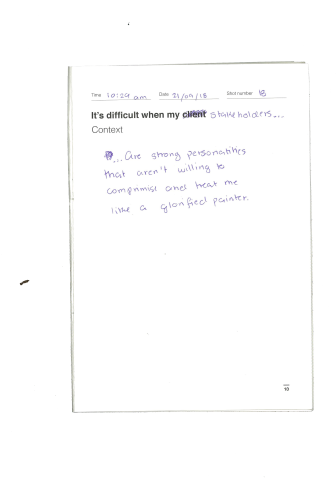 Time 10:29 am Date 21/09/18 Shot number 18
It's difficult when my client stakeholders...
Context
... are strong personalities
that aren't willing to
compromise and treat me
like a glorified painter.
10